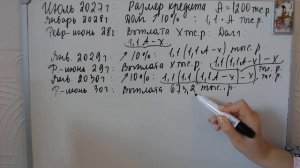 Июль 2027г. Размер кредита A = 1200 тыс.р.
Январь 2028г. Долг ↗ 10% : 1,1 A тыс.р.
Фев-июнь 28г. Выплата X тыс.р. Долг:
1,1·A - x
Янв. 2029г. ↗ 10% : 1,1(1,1·A - x) тыс.р.
Ф.-июнь 29г. Выплата X тыс.р. 1,1(1,1·A - x) - x
Янв 2030г. ↗ 10% : 1,1(1,1(1,1·A - x) - x) тыс.р.
Ф.-июнь 30г. Выплата 673,2 тыс.р.